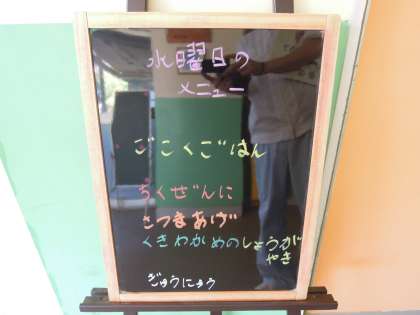 水曜日の
メニュー
ごこくごはん
ちくぜんに
さつまあげ
くきわかめのしょうが
やき
ぎゅうにゅう